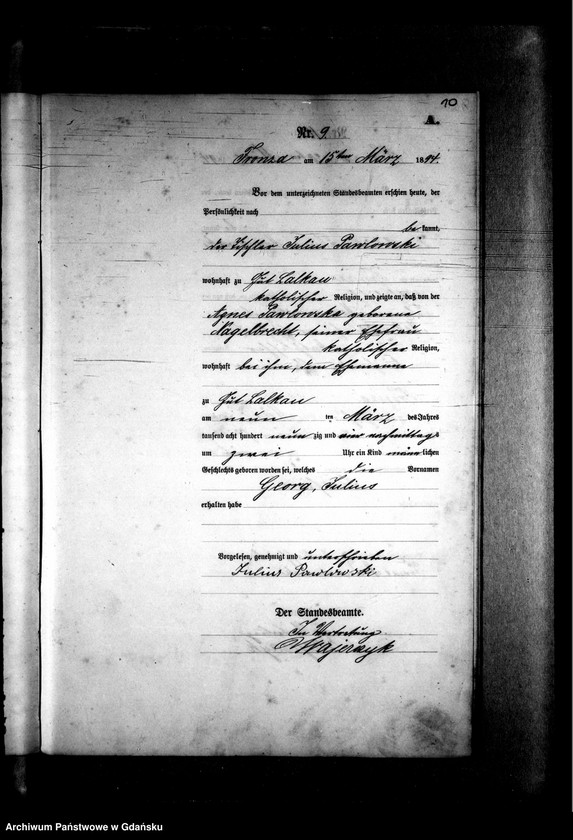 10
A.
Nr. 9.
Fronza am 15ten März 1894.
Vor dem unterzeichneten Standesbeamten erschien heute, der
Persönlichkeit nach
be kannt,
der Tischler Julius Pawlowski
wohnhaft zu Gut Lalkau
katholischer Religion, und zeigte an, daß von der
Agnes Pawlowska geborene
Nagelbrecht, seiner Ehefrau
katholischer Religion,
wohnhaft bei ihm, dem Ehemanne
zu Gut Lalkau
am neun ten März des Jahres
tausend acht hundert neun zig und vier nachmittags
um zwei Uhr ein Kind männlichen
Geschlechts geboren worden sei, welches die Vornamen
Georg, Julius
erhalten habe
Vorgelesen, genehmigt und unterschrieben
Julius Pawlowski
Der Standesbeamte.
In Vertretung
Majerzyk
Archiwum Państwowe w Gdańsku